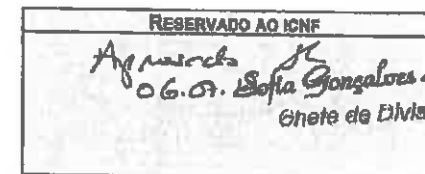 RESERVADO AO ICNF
Aprovado
06.07. Sofia Gonçalves
Chefe de Divis